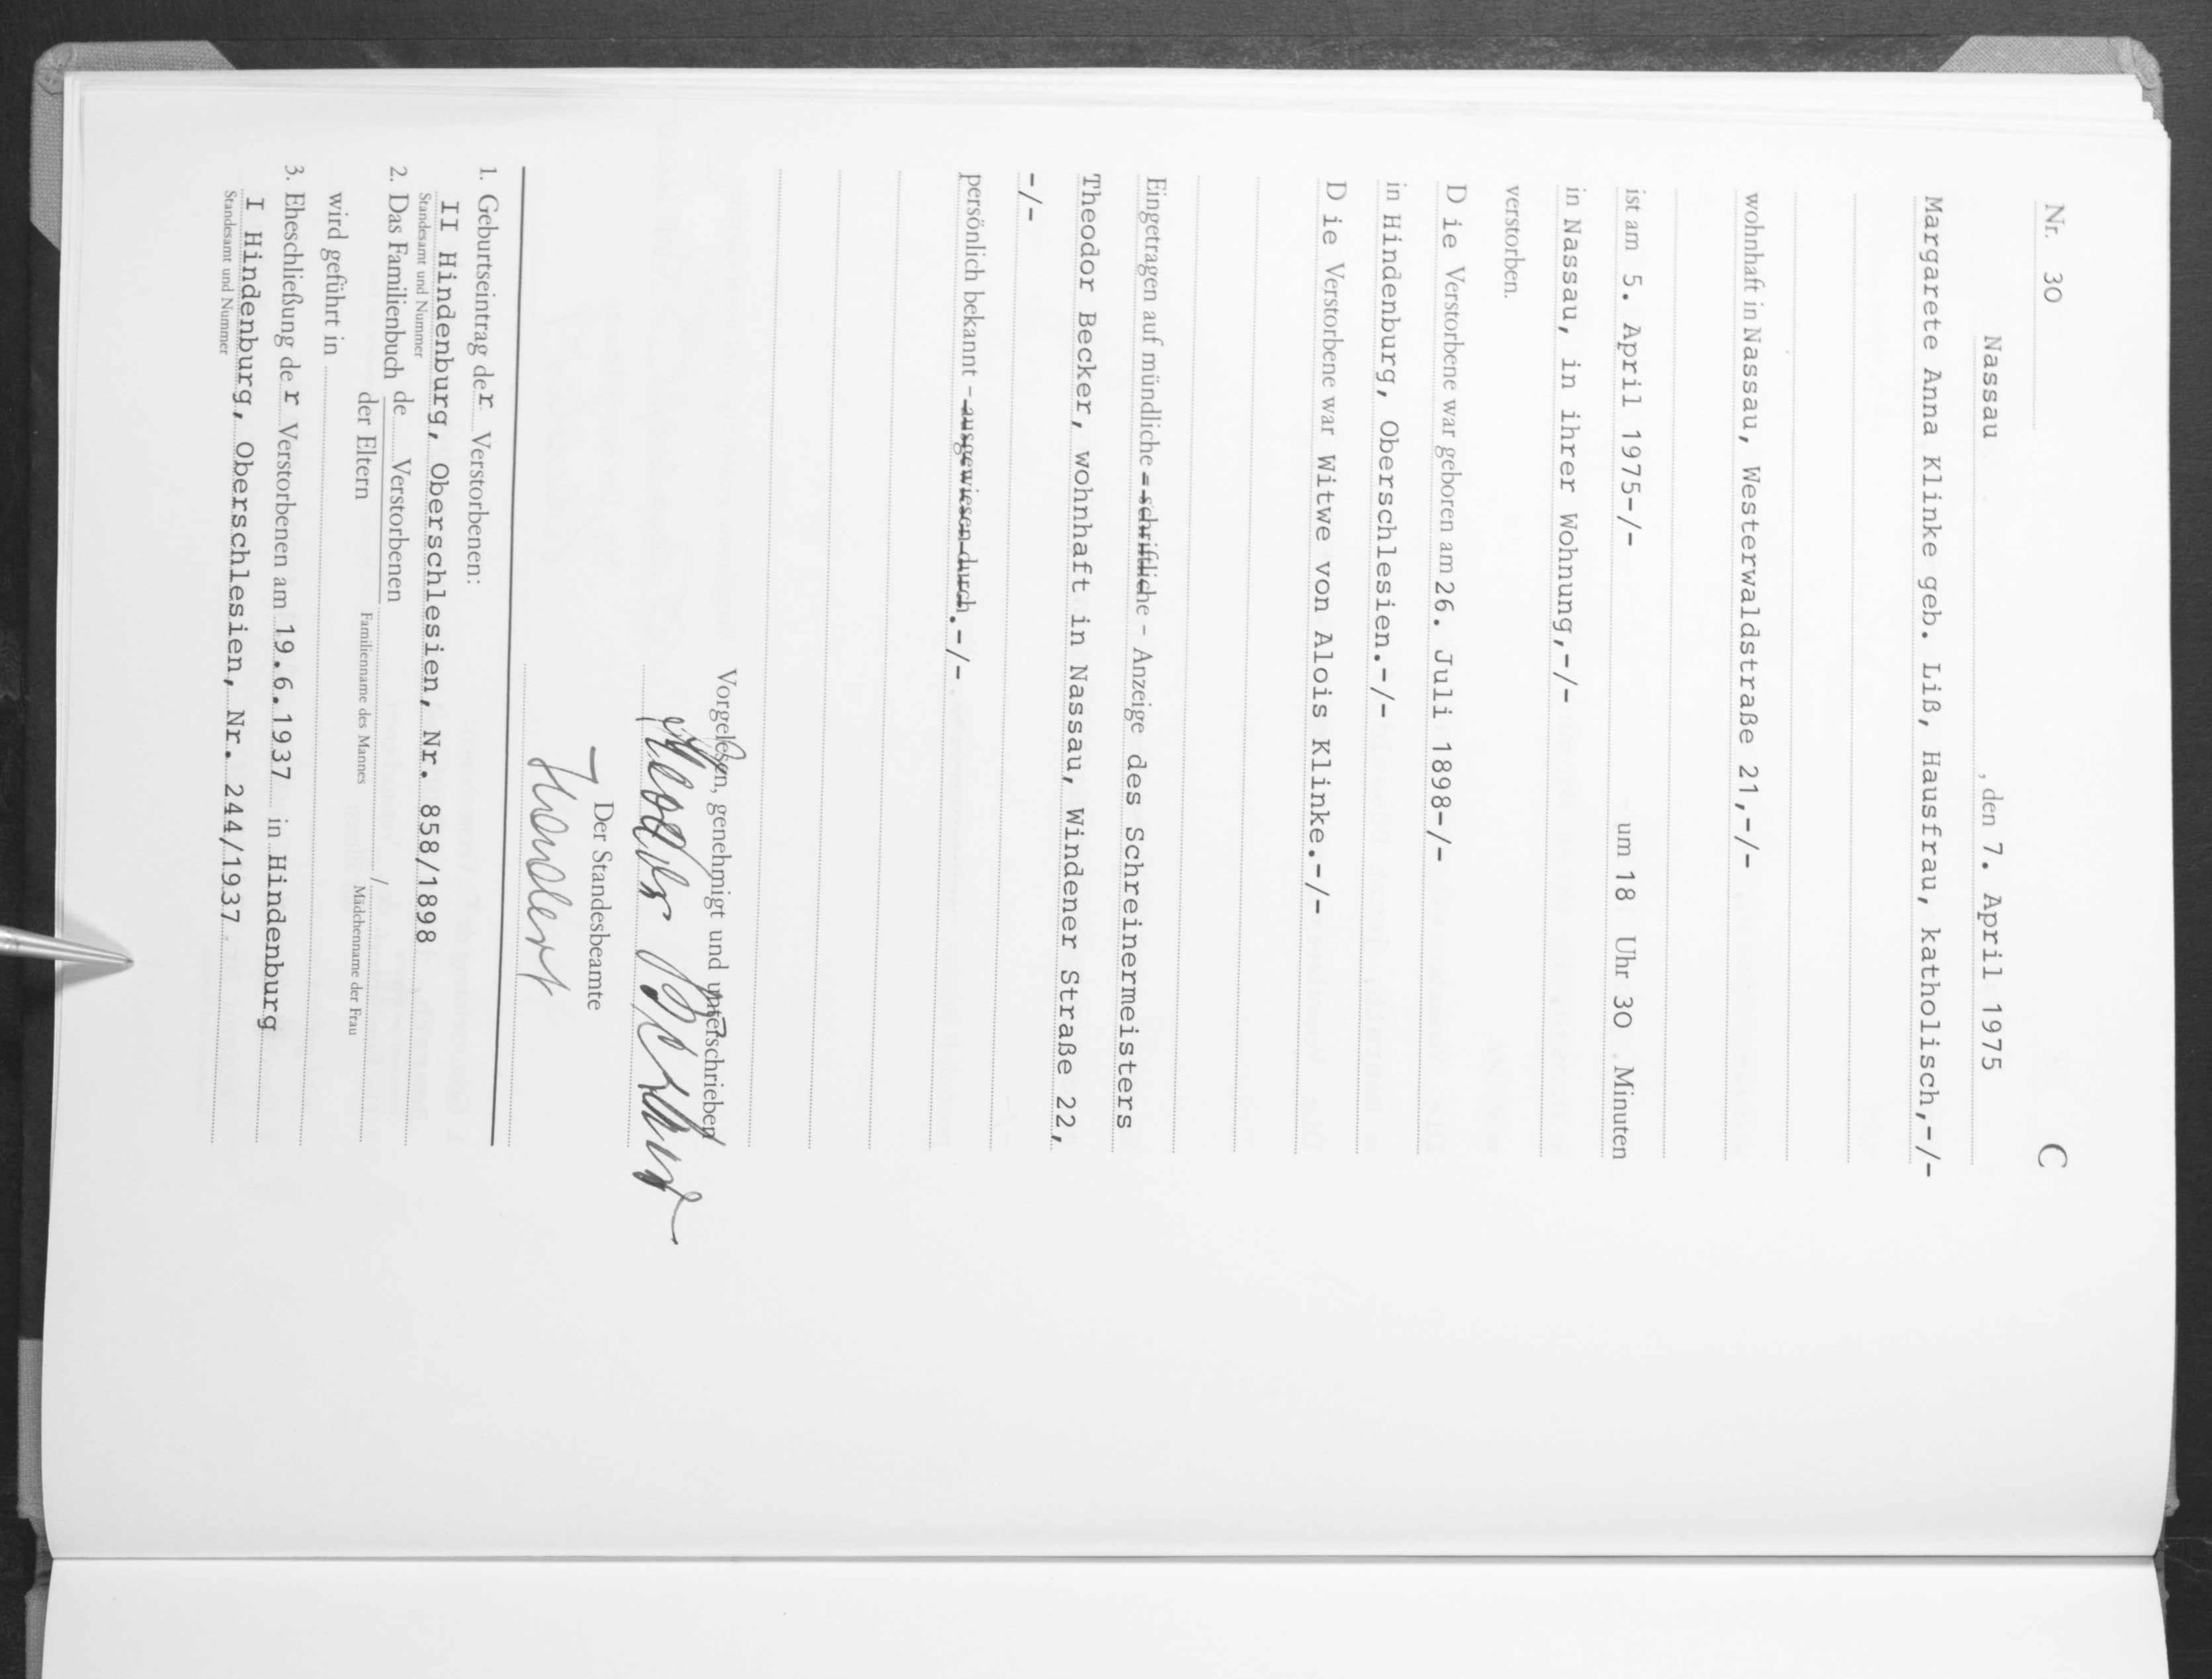 Nr. 30 C
Nassau, den 7. April 1975
Margarete Anna Klinke geb. Liß, Hausfrau, katholisch,-/-
wohnhaft in Nassau, Westerwaldstraße 21,-/-
ist am 5. April 1975-/- um 18 Uhr 30 Minuten
in Nassau, in ihrer Wohnung,-/-
verstorben.
D ie Verstorbene war geboren am 26. Juli 1898-/-
in Hindenburg, Oberschlesien.-/-
D ie Verstorbene war Witwe von Alois Klinke.-/-
Eingetragen auf mündliche - schriftliche - Anzeige des Schreinermeisters
Theodor Becker, wohnhaft in Nassau, Windener Straße 22,
-/-
persönlich bekannt - ausgewiesen durch.-/-
Vorgelesen, genehmigt und unterschrieben
Theodor
Der Standesbeamte
1. Geburtseintrag der Verstorbenen:
II Hindenburg, Oberschlesien, Nr. 858/1898
Standesamt und Nummer
2. Das Familienbuch de Verstorbenen
der Eltern Familienname des Mannes / Mädchenname der Frau
wird geführt in
3. Eheschließung de r Verstorbenen am 19.6.1937 in Hindenburg
I Hindenburg, Oberschlesien, Nr. 244/1937.
Standesamt und Nummer